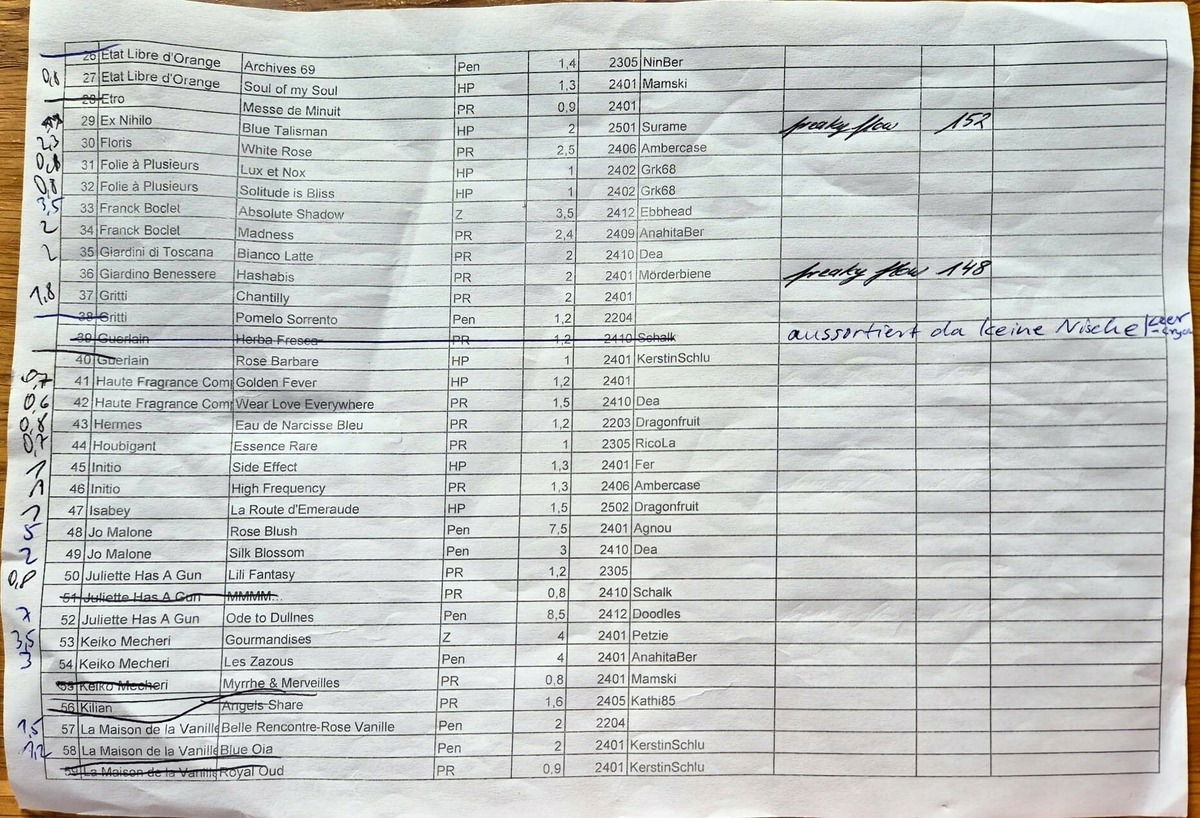 26 Etat Libre d'Orange Archives 69 Pen 1,4 2305 NinBer
0,8 27 Etat Libre d'Orange Soul of my Soul HP 1,3 2401 Mamski
28 Etro Messe de Minuit PR 0,9 2401
29 Ex Nihilo Blue Talisman HP 2 2501 Surame freaky flow 152
2,3 30 Floris White Rose PR 2,5 2406 Ambercase
0,8 31 Folie à Plusieurs Lux et Nox HP 1 2402 Grk68
0,8 32 Folie à Plusieurs Solitude is Bliss HP 1 2402 Grk68
3,5 33 Franck Boclet Absolute Shadow Z 3,5 2412 Ebbhead
2 34 Franck Boclet Madness PR 2,4 2409 AnahitaBer
2 35 Giardini di Toscana Bianco Latte PR 2 2410 Dea
36 Giardino Benessere Hashabis PR 2 2401 Mörderbiene freaky flow 148
1,8 37 Gritti Chantilly PR 2 2401
38 Gritti Pomelo Sorrento Pen 1,2 2204
39 Guerlain Herba Fresca PR 1,2 2410 Schalk aussortiert da keine Nische
40 Guerlain Rose Barbare HP 1 2401 KerstinSchlu
41 Haute Fragrance Com Golden Fever HP 1,2 2401
42 Haute Fragrance Com Wear Love Everywhere PR 1,5 2410 Dea
43 Hermes Eau de Narcisse Bleu PR 1,2 2203 Dragonfruit
44 Houbigant Essence Rare PR 1 2305 RicoLa
1 45 Initio Side Effect HP 1,3 2401 Fer
1 46 Initio High Frequency PR 1,3 2406 Ambercase
1 47 Isabey La Route d'Emeraude HP 1,5 2502 Dragonfruit
5 48 Jo Malone Rose Blush Pen 7,5 2401 Agnou
2 49 Jo Malone Silk Blossom Pen 3 2410 Dea
0,8 50 Juliette Has A Gun Lili Fantasy PR 1,2 2305
51 Juliette Has A Gun MMMM... PR 0,8 2410 Schalk
7 52 Juliette Has A Gun Ode to Dullnes Pen 8,5 2412 Doodles
3,5 53 Keiko Mecheri Gourmandises Z 4 2401 Petzie
3 54 Keiko Mecheri Les Zazous Pen 4 2401 AnahitaBer
55 Keiko Mecheri Myrrhe & Merveilles PR 0,8 2401 Mamski
56 Kilian Angels Share PR 1,6 2405 Kathi85
1,5 57 La Maison de la Vanille Belle Rencontre-Rose Vanille Pen 2 2204
1,2 58 La Maison de la Vanille Blue Oia Pen 2 2401 KerstinSchlu
59 La Maison de la Vanille Royal Oud PR 0,9 2401 KerstinSchlu